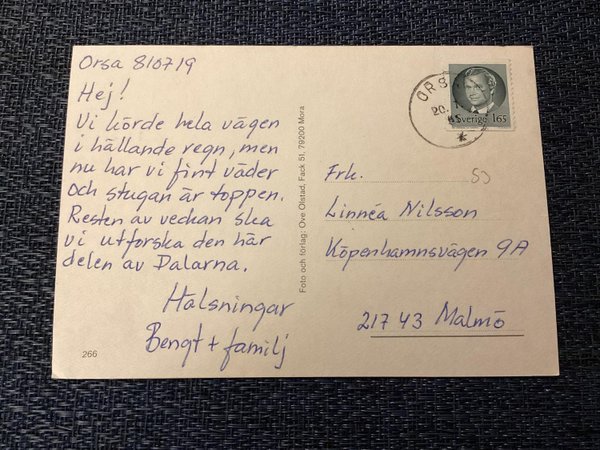 Orsa 810719
Hej!
Vi körde hela vägen
i hällande regn, men
nu har vi fint väder
och stugan är toppen.
Resten av veckan ska
vi utforska den här
delen av Dalarna.
Hälsningar
Bengt + familj
266
Foto och förlag: Ove Olstad, Fack 51, 79200 Mora
ORS
20.
Sverige 165
Frk.
Linnéa Nilsson
Köpenhamnsvägen 9A
217 43 Malmö